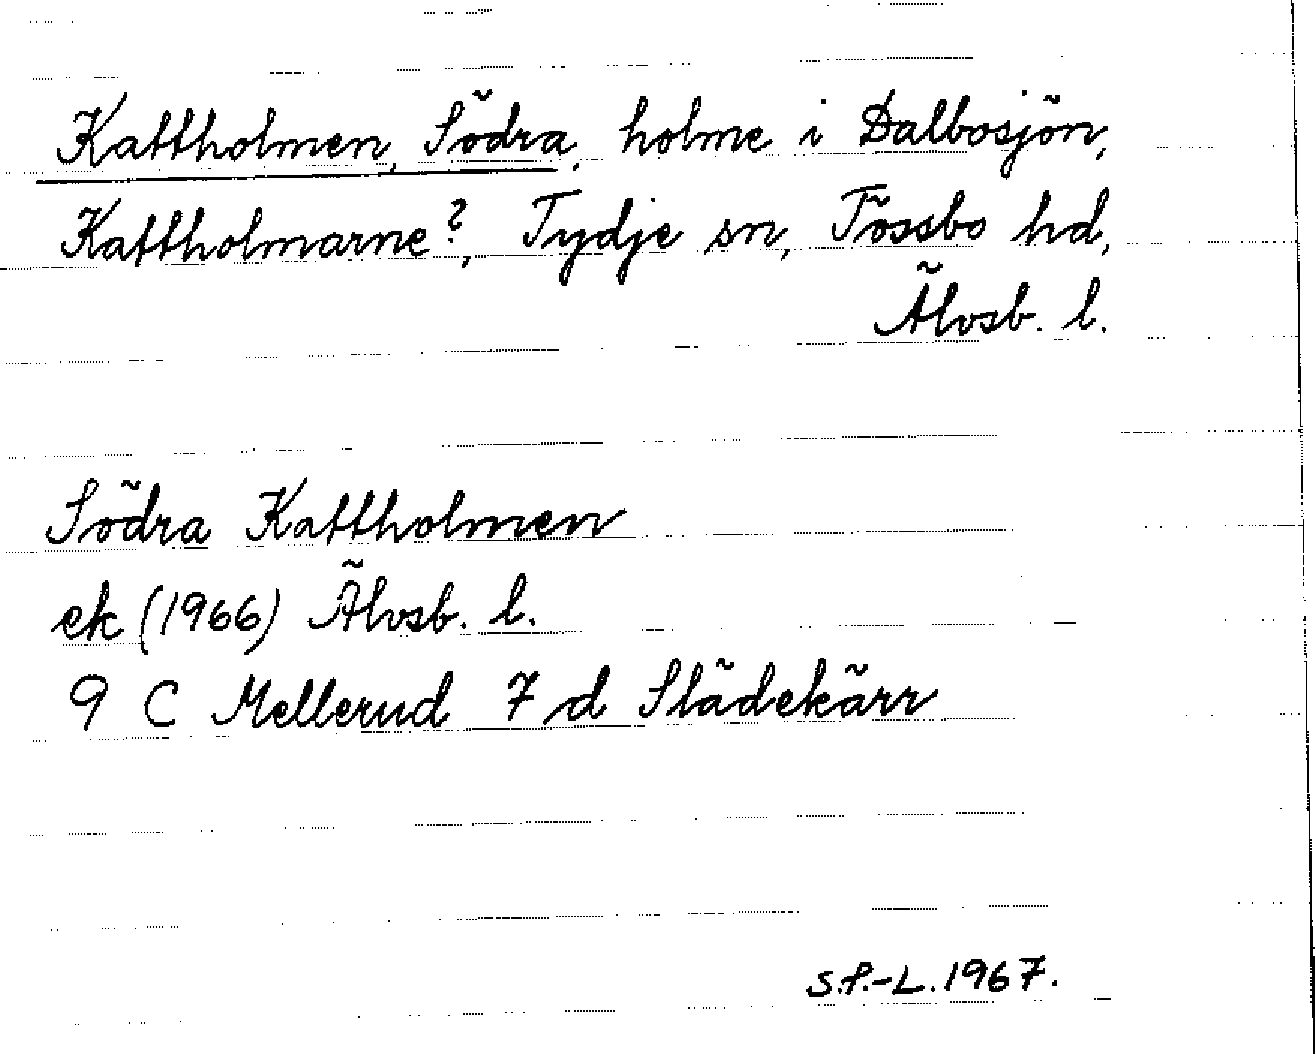 Kattholmen, Södra, holme i Dalbosjön,
Kattholmarne?, Tydje sn, Tössbo hd,
Älvsb. l.
Södra Kattholmen
ek (1966) Älvsb. l.
9 C Mellerud 7 d Slädekärr
S.P.-L. 1967.